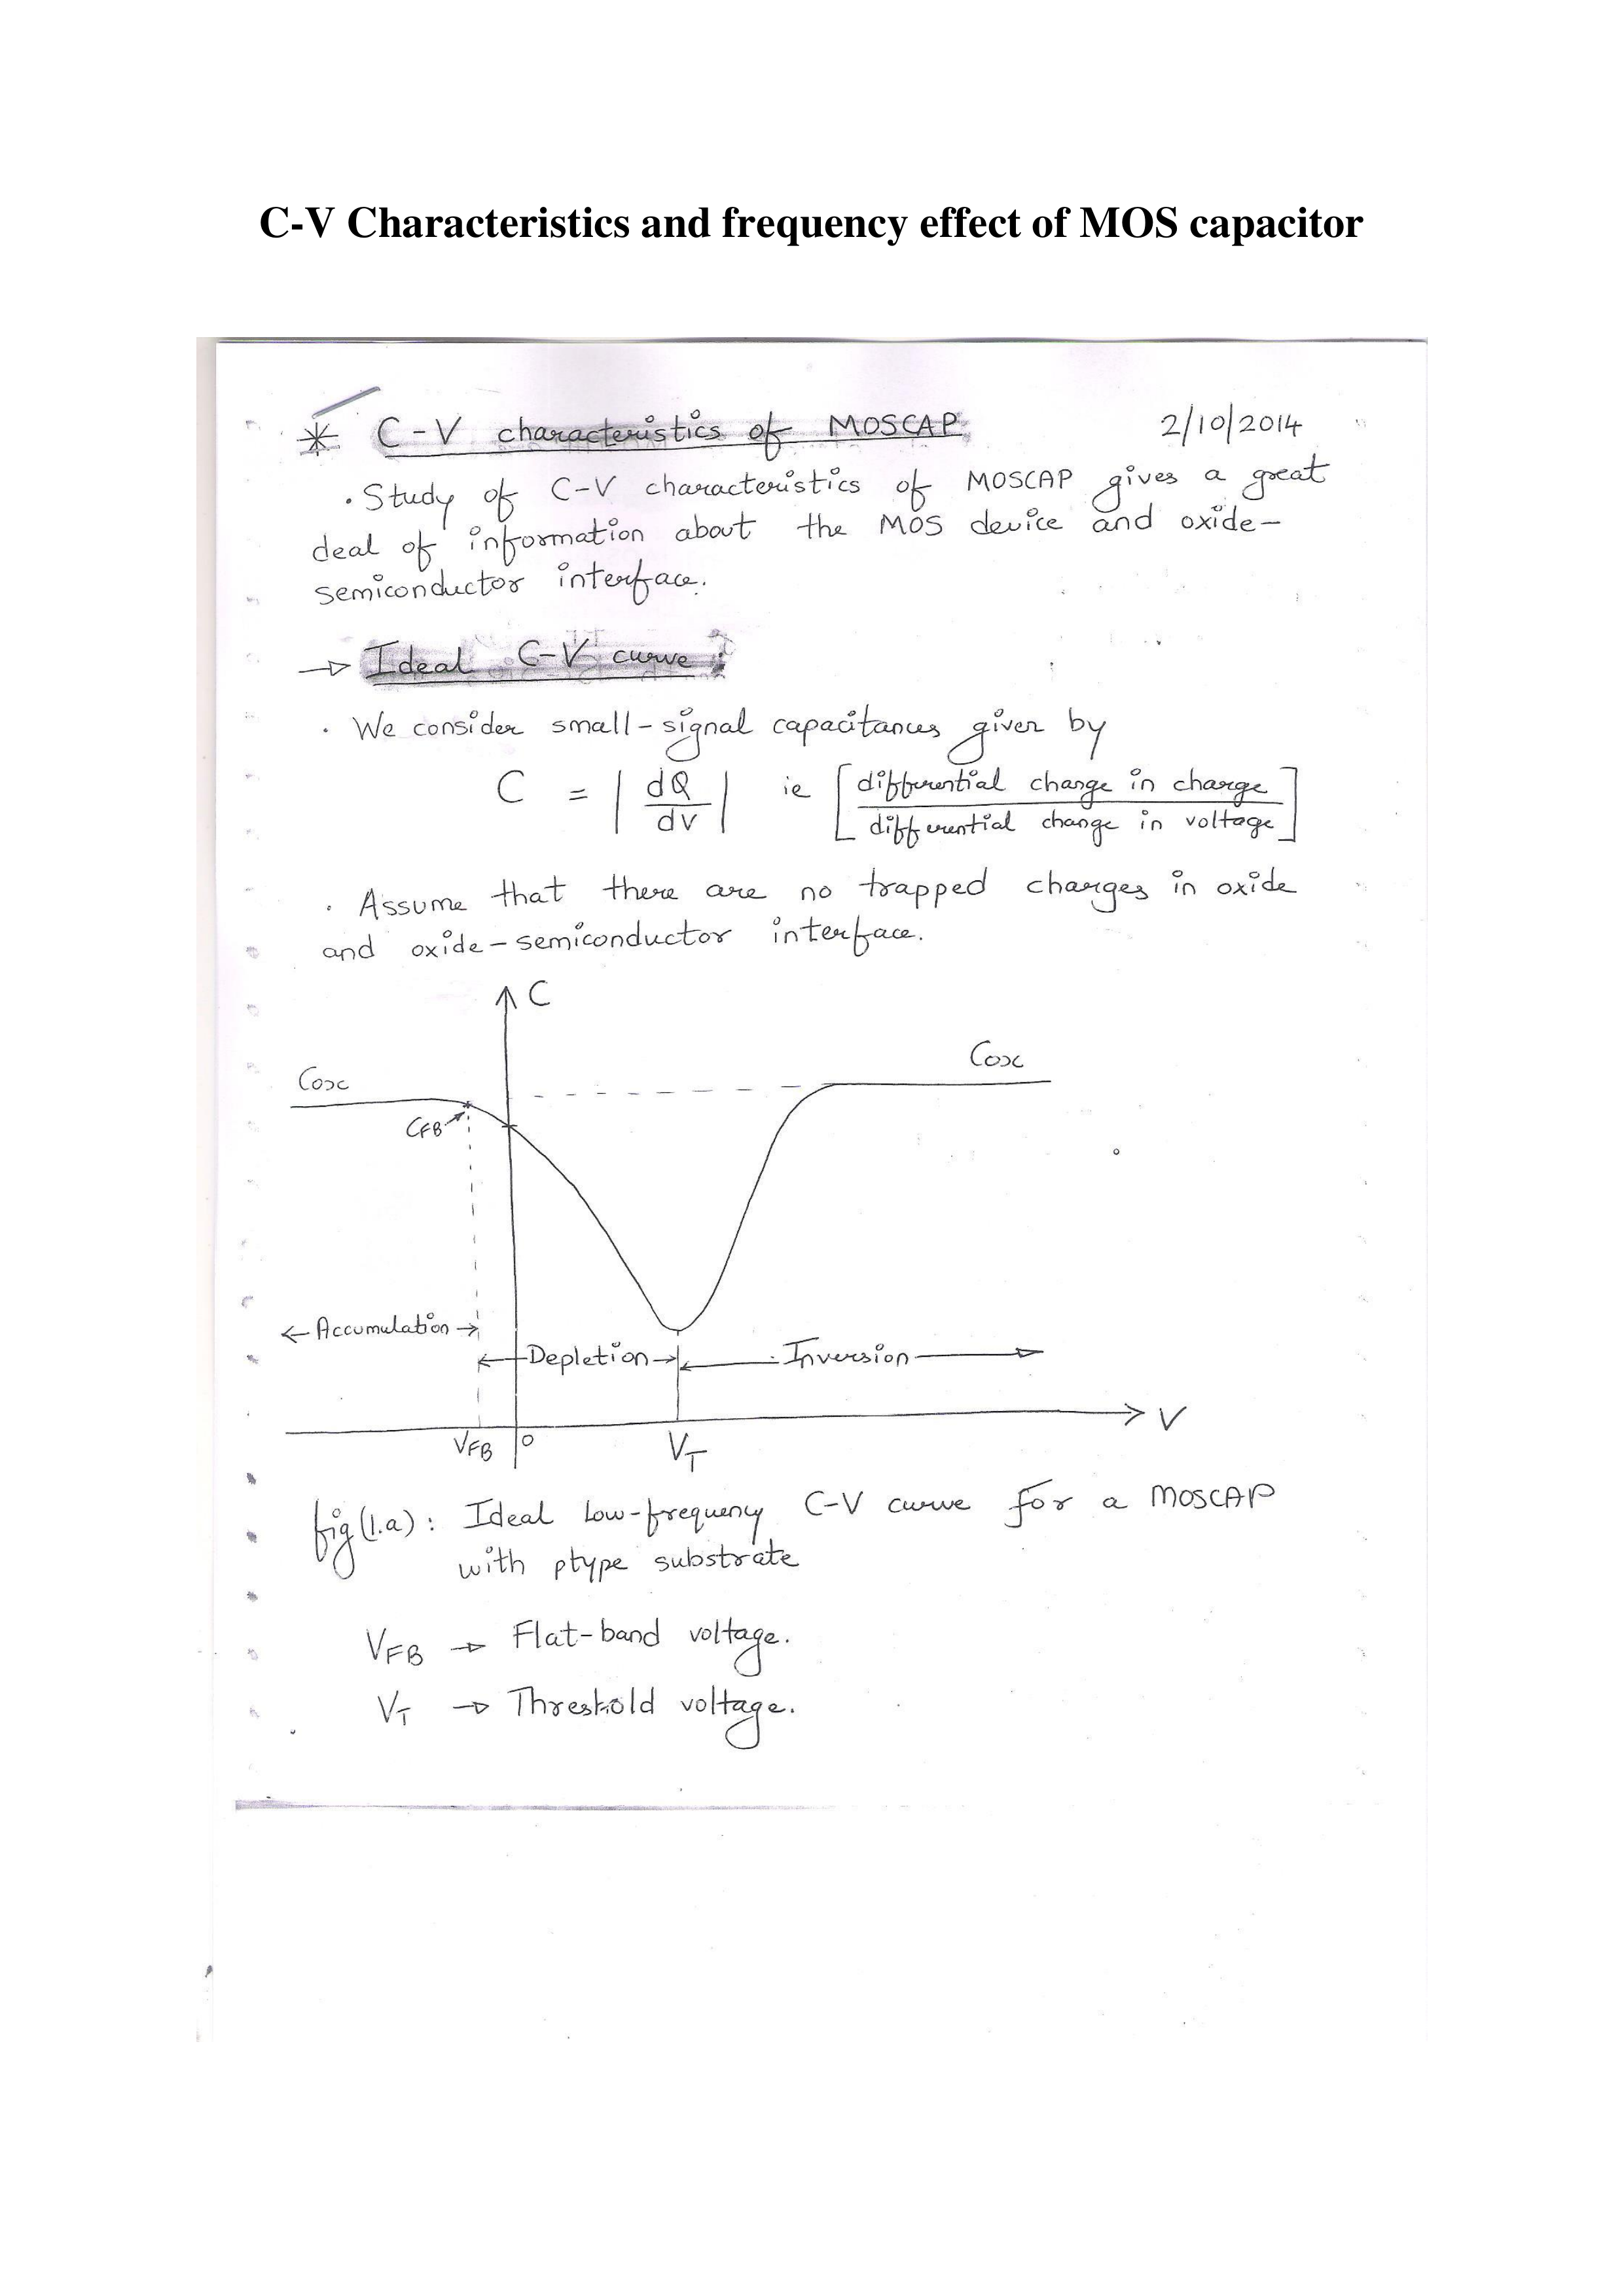 C-V Characteristics and frequency effect of MOS capacitor
* C-V characteristics of MOSCAP 2/10/2014
· Study of C-V characteristics of MOSCAP gives a great
deal of information about the MOS device and oxide-
semiconductor interface.
→ Ideal C-V curve :
· We consider small-signal capacitances given by
C = | dQ / dv | ie [ differential change in charge / differential change in voltage ]
· Assume that there are no trapped charges in oxide
and oxide-semiconductor interface.
C
Cox
Cox
CFB
← Accumulation →
← Depletion → ← Inversion →
V
VFB 0 VT
fig (1.a) : Ideal Low-frequency C-V curve for a MOSCAP
with ptype substrate
VFB → Flat-band voltage.
VT → Threshold voltage.